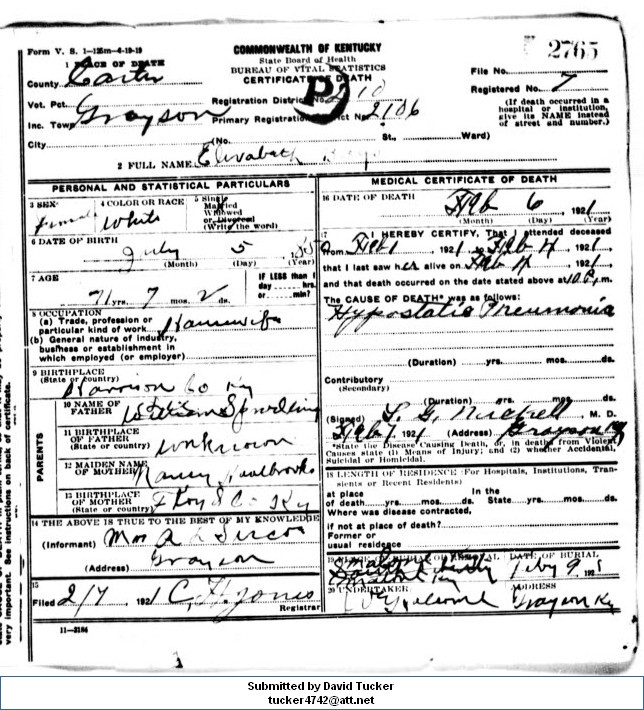 Form V. S. 1-125m-4-19-19
COMMONWEALTH OF KENTUCKY
State Board of Health
BUREAU OF VITAL STATISTICS
CERTIFICATE OF DEATH
2765
1 PLACE OF DEATH
County Carter
File No.
Registered No. 7
Vot. Pct.
Registration District No.
(If death occurred in a hospital or institution, give its NAME instead of street and number.)
Inc. Town Grayson
Primary Registration District No. 2106
City (No. St., Ward)
2 FULL NAME Elizabeth
PERSONAL AND STATISTICAL PARTICULARS
3 SEX female
4 COLOR OR RACE White
5 Single
Married
Widowed
or Divorced
(Write the word)
6 DATE OF BIRTH
July 5
(Month) (Day) (Year)
7 AGE
71 yrs. 7 mos. 2 ds.
IF LESS than 1
day hrs.
or min?
8 OCCUPATION
(a) Trade, profession or
particular kind of work Housewife
(b) General nature of industry,
business or establishment in
which employed (or employer)
9 BIRTHPLACE
(State or country)
Harrison Co Ky
PARENTS
10 NAME OF
FATHER
11 BIRTHPLACE
OF FATHER
(State or country) unknown
12 MAIDEN NAME
OF MOTHER Nancy
13 BIRTHPLACE
OF MOTHER
(State or country) Floyd Co Ky
14 THE ABOVE IS TRUE TO THE BEST OF MY KNOWLEDGE
(Informant) Mrs A L
(Address) Grayson
15
Filed 2/7 1921 C. H. Jones
Registrar
11-3184
MEDICAL CERTIFICATE OF DEATH
16 DATE OF DEATH
Feb 6, 1921
(Month) (Day) (Year)
17 I HEREBY CERTIFY, That I attended deceased
from Feb 1 1921 to Feb 4 1921,
that I last saw her alive on Feb 4, 1921,
and that death occurred on the date stated above at 10 P. m.
The CAUSE OF DEATH* was as follows:
Hypostatic Pneumonia
(Duration) yrs. mos. ds.
Contributory
(Secondary)
(Duration) yrs. mos. ds.
(Signed) M. D.
Feb 7, 1921 (Address) Grayson Ky
*State the Disease Causing Death, or, in deaths from Violent
Causes state (1) Means of Injury; and (2) whether Accidental,
Suicidal or Homicidal.
18 LENGTH OF RESIDENCE (For Hospitals, Institutions, Tran-
sients or Recent Residents)
at place
of death yrs. mos. ds.
In the
State yrs. mos. ds.
Where was disease contracted,
if not at place of death?
Former or
usual residence
19 PLACE OF BURIAL OR REMOVAL
DATE OF BURIAL
Feby 9, 192
20 UNDERTAKER
ADDRESS
Grayson Ky
very important. See instructions on back of certificate.
Submitted by David Tucker
tucker4742@att.net